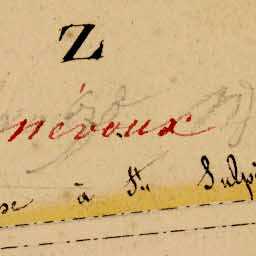 Z
névoux
se à St. Sulpi